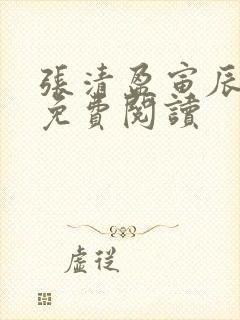 張清盈寅辰
免費閱讀
虛從